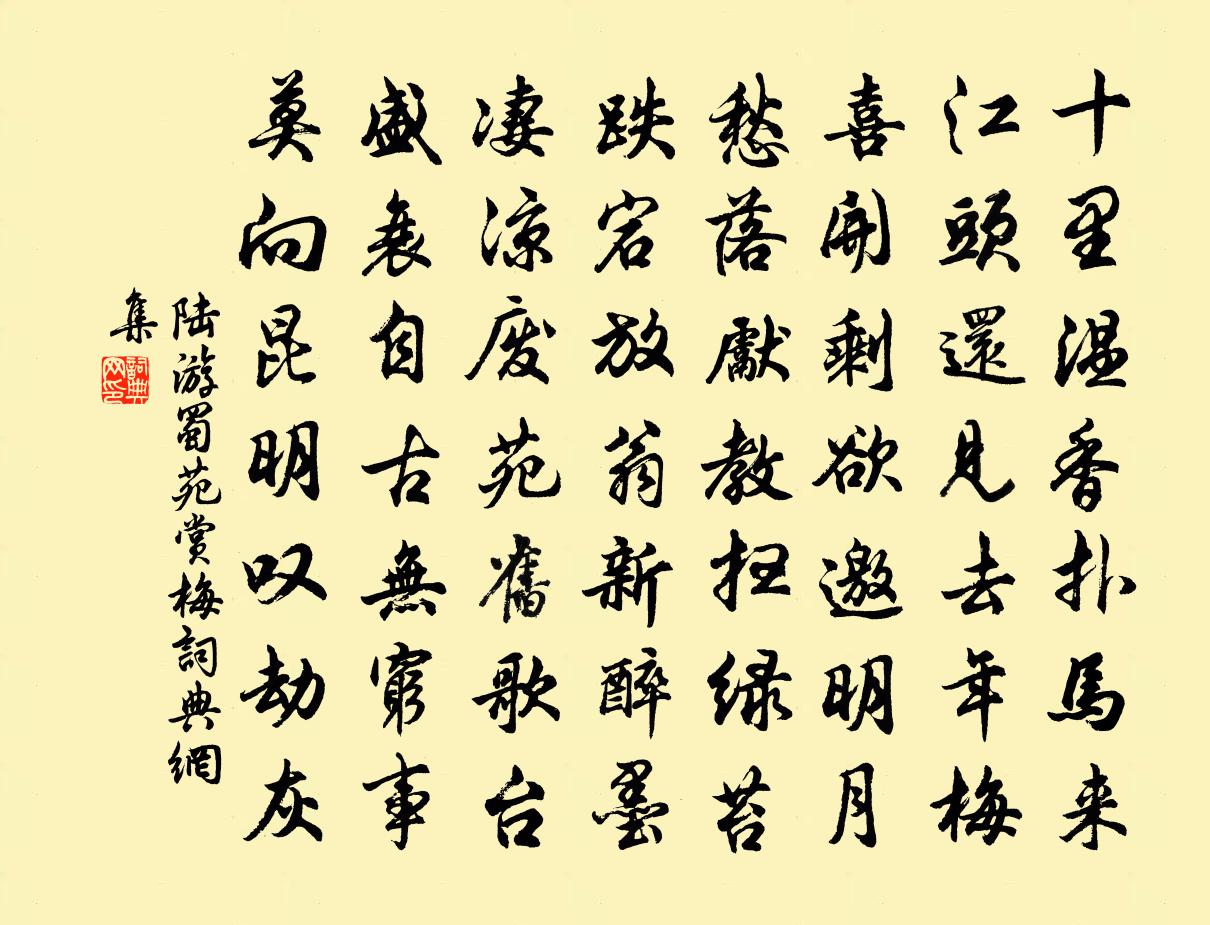 十里温香扑馬来
江頭還見去年梅
喜開剩欲邀明月
愁落獻教扫绿苔
跌宕放翁新醉墨
凄涼废苑舊歌台
盛衰自古無窮事
莫向昆明叹劫灰
陆游蜀苑賞梅詞典網
集
詞典网印